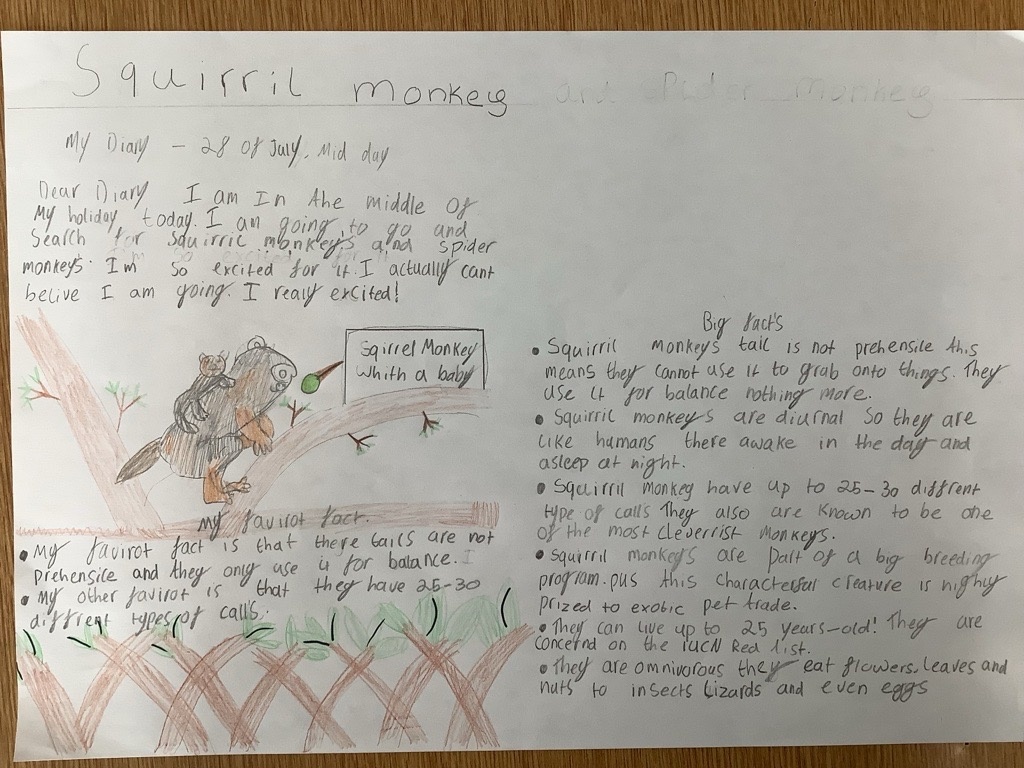 Squirril monkey and Pider Monkey
My Diary - 28 of July, Mid day
Dear Diary I am In the middle of
My holiday today. I am going to go and
Search for squirril monkeys and spider
monkeys. I'm so excited for it. I actually cant
belive I am going. I realy excited!
Sqirrel Monkey
Whith a baby
My favirot fact.
• My favirot fact is that there tails are not
prehensile and they only use it for balance. I
• My other favirot is that they have 25-30
different types of call's.
Big fact's
• Squirril monkeys tail is not prehensile this
means they cannot use it to grab onto things. They
use it for balance nothing more.
• Squirril monkeys are diurnal so they are
like humans there awake in the day and
asleep at night.
• Squirril monkey have up to 25-30 diffrent
type of calls They also are known to be one
of the most cleverrist Monkeys.
• Squirril monkeys are part of a big breeding
program. pus this characterful creature is highly
prized to exotic pet trade.
• They can live up to 25 years-old! They are
concernd on the IUCN Red list.
• They are omnivorous they eat flowers, leaves and
nuts to insects Lizards and even eggs